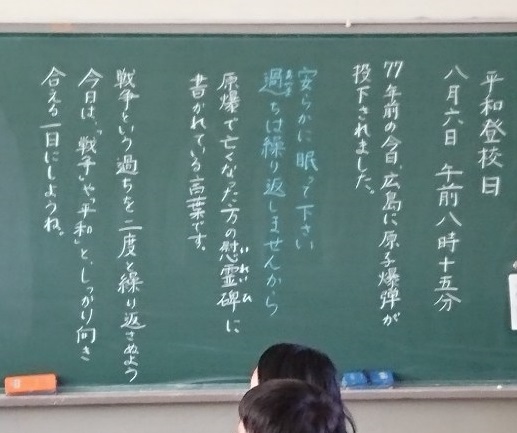 平和登校日
八月六日 午前八時十五分
77年前の今日、広島に原子爆弾が
投下されました。
安らかに眠って下さい
過ちは繰り返しませんから
あやま
原爆で亡くなった方の慰霊碑に
いれいひ
書かれている言葉です。
戦争という過ちを二度と繰り返さぬよう
今日は、「戦争」や「平和」と、しっかり向き
合える一日にしようね。